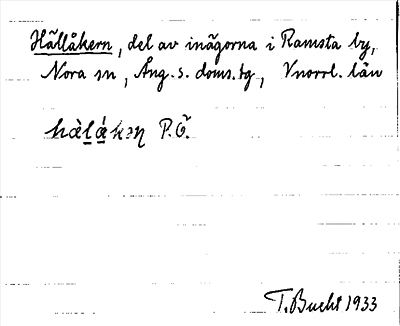 Hällåkern, del av inägorna i Ramsta by,
Nora sn, Ång. s. doms.tg, Vnorrl. län
P.Ö.
T. Bucht 1933